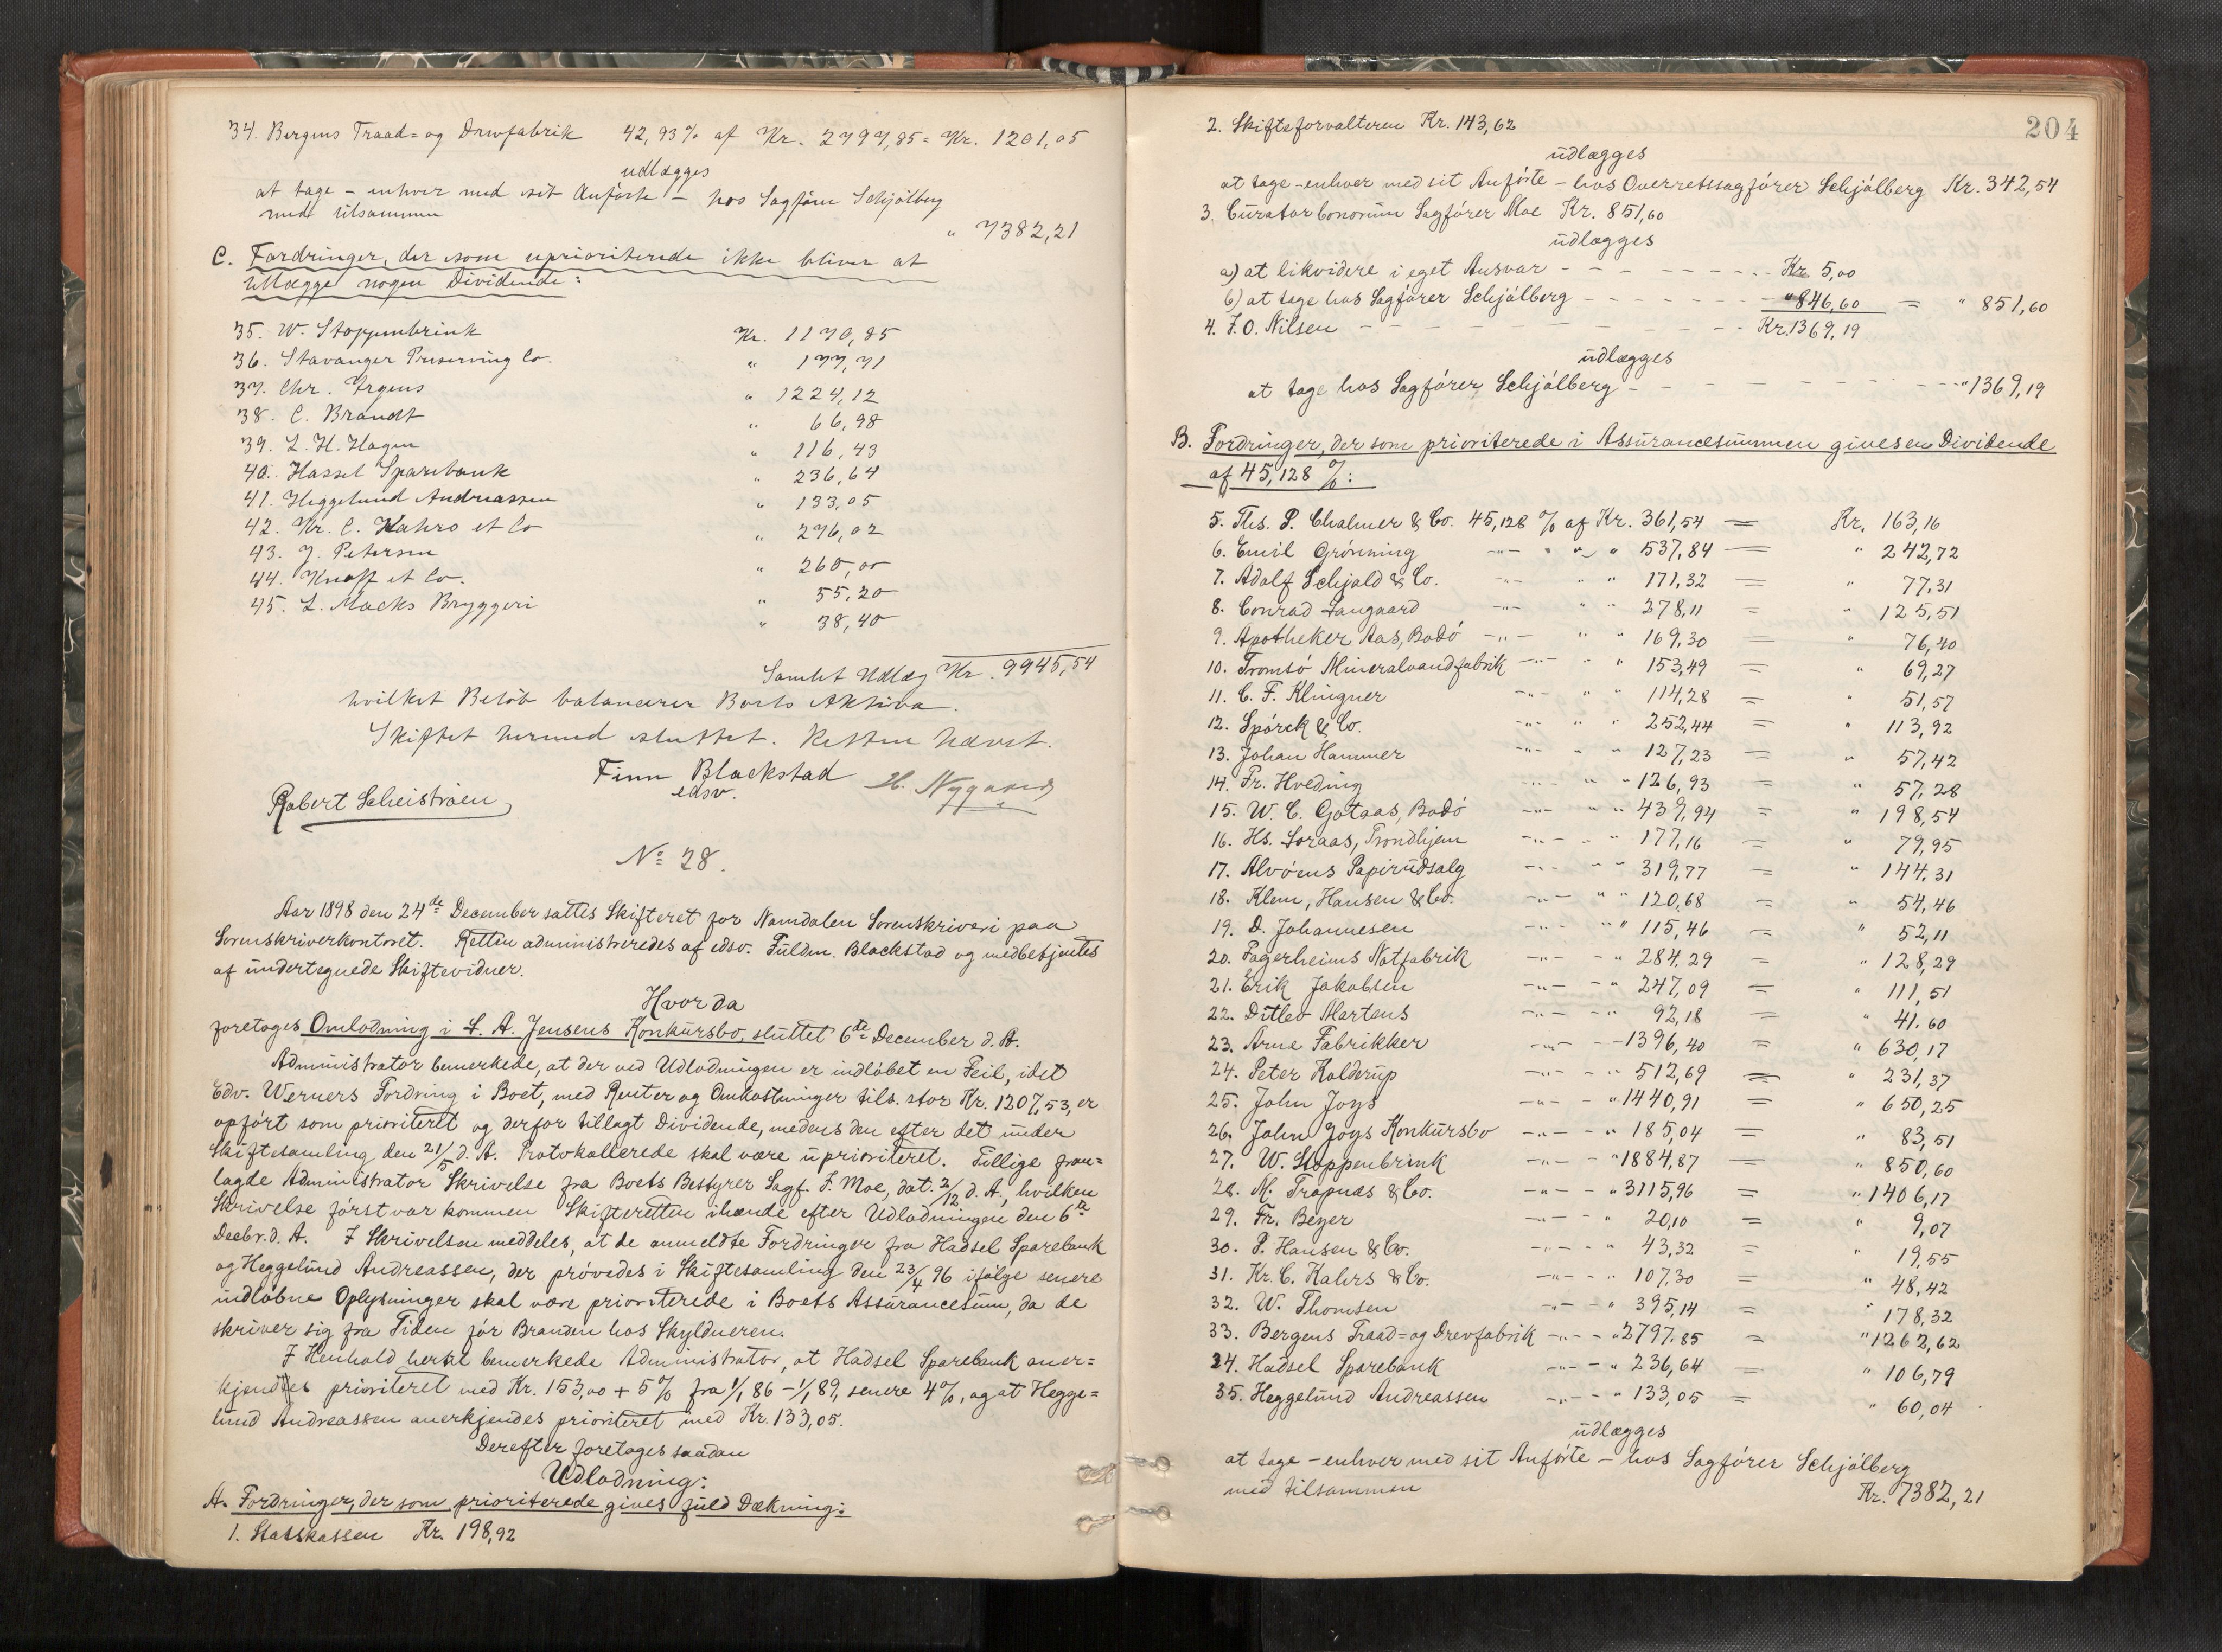 34. Bergens Traad- og Drevfabrik 42,93% af Kr. 2797,85 = Kr. 1201,05
udlægges
at tage – enhver med sit Anførte – hos Sagfører Schjølberg
med tilsammen " 7382,21
C. Fordringer, der som uprioriterede ikke bliver at
tillægge nogen Dividende:
35. W. Stoppenbrink Kr. 1170,85
36. Stavanger Preserving Co. " 177,71
37. Chr. Irgens " 1224,12
38. C. Brandt " 66,98
39. L. H. Hagen " 116,43
40. Hassel Sparebank " 236,64
41. Heggelund Andreassen " 133,05
42. Kr. C. Kahrs et Co " 276,02
43. J. Petersen " 260,00
44. Knoff et Co. " 55,20
45. L. Macks Bryggeri " 38,40
Samlet Udlæg Kr. 9945,54
hvilket Beløb balancerer Boets Aktiva.
Skiftet hermed sluttet. Retten hævet.
Finn Blackstad
edsv.
H. Nygaard
Robert Scheistrøen
No 28.
Aar 1898 den 24de December sattes Skifteret for Namdalen Sorenskriveri paa
Sorenskriverkontoret. Retten administreredes af edsv. Fuldm. Blackstad og medbetjentes
af undertegnede Skiftevidner.
Hvor da
foretoges Omlodning i L. A. Jensens Konkursbo, sluttet 6te December d. A.
Administrator bemerkede, at der ved Udlodningen er indløbet en Feil, idet
Edv. Werners Fordring i Boet, med Renter og Omkostninger tils. stor Kr. 1207,53, er
opført som prioriteret og derfor tillagt Dividende, medens den efter det under
Skiftesamling den 21/5 d. A. Protokollerede skal være uprioriteret. Tillige frem-
lagde Administrator Skrivelse fra Boets Bestyrer Sagf. F. Moe, dat. 2/12 d. A., hvilken
Skrivelse først var kommen Skifteretten ihænde efter Udlodningen den 6te
Decbr. d. A. I Skrivelsen meddeles, at de anmeldte Fordringer fra Hadsel Sparebank
og Heggelund Andreassen, der prøvedes i Skiftesamling den 23/4 96 ifølge senere
indløbne Oplysninger skal være prioriterede i Boets Assurancesum, da de
skriver sig fra Tiden før Branden hos Skyldneren.
I Henhold hertil bemerkede Administrator, at Hadsel Sparebank aner-
kjendtes prioriteret med Kr. 153,00 + 5% fra 1/1 86 – 1/1 89, senere 4%, og at Hegge-
lund Andreassen anerkjendes prioriteret med Kr. 133,05.
Derefter foretoges saadan
Udlodning:
A. Fordringer, der som prioriterede gives fuld Dækning:
1. Statskassen Kr. 198,92
204
2. Skifteforvalteren Kr. 143,62
udlægges
at tage – enhver med sit Anførte – hos Overretssagfører Schjølberg Kr. 342,54
3. Curator bonorum Sagfører Moe Kr. 851,60
udlægges
a) at likvidere i eget Ansvar – – – – – – – Kr. 5,00
b) at tage hos Sagfører Schjølberg – – – – – – – " 846,60 = " 851,60
4. J. O. Nilsen – – – – – – – – – – – – Kr. 1369,19
udlægges
at tage hos Sagfører Schjølberg – – – – – – – – – – – " 1369,19
B. Fordringer, der som prioriterede i Assurancesummen gives en Dividende
af 45,128 %:
5. Ths. P. Chalmer & Co. 45,128 % af Kr. 361,54 = Kr. 163,16
6. Emil Grønning –"– " " " 537,84 = " 242,72
7. Adolf Schjold & Co. –"– " " 171,32 = " 77,31
8. Conrad Langaard –"– " " 278,11 = " 125,51
9. Apotheker Aas, Bodø –"– " " 169,30 = " 76,40
10. Tromsø Mineralvandfabrik –"– " " 153,49 = " 69,27
11. C. F. Klingner –"– " " 114,28 = " 51,57
12. Spørck & Co. –"– " " 252,44 = " 113,92
13. Johan Hammer –"– " " 127,23 = " 57,42
14. Fr. Hveding –"– " " 126,93 = " 57,28
15. W. C. Gotaas, Bodø –"– " " 439,94 = " 198,54
16. Hs. Soraas, Trondhjem –"– " " 177,16 = " 79,95
17. Alvøens Papirudsalg –"– " " 319,77 = " 144,31
18. Klem, Hansen & Co. –"– " " 120,68 = " 54,46
19. D. Johannesen –"– " " 115,46 = " 52,11
20. Fagerheims Notfabrik –"– – " 284,29 = " 128,29
21. Erik Jakobsen –"– – " 247,09 = " 111,51
22. Ditlev Martens –"– – " 92,18 = " 41,60
23. Arne Fabrikker –"– – – 1396,40 = " 630,17
24. Peter Kolderup –"– – " 512,69 = " 231,37
25. John Joys –"– – " 1440,91 = " 650,25
26. John Joys Konkursbo –"– – " 185,04 = " 83,51
27. W. Stoppenbrink –"– – " 1884,87 = " 850,60
28. M. Trapnæs & Co. –"– – " 3115,96 = " 1406,17
29. Fr. Beyer –"– – " 20,10 = " 9,07
30. P. Hansen & Co. –"– – " 43,32 = " 19,55
31. Kr. C. Kahrs & Co. –"– – " 107,30 = " 48,42
32. W. Thomsen –"– – " 395,14 = " 178,32
33. Bergens Traad- og Drevfabrik –"– – " 2797,85 = " 1262,62
34. Hadsel Sparebank –"– – " 236,64 = " 106,79
35. Heggelund Andreassen –"– – " 133,05 = " 60,04
udlægges
at tage – enhver med sit Anførte – hos Sagfører Schjølberg
med tilsammen Kr. 7382,21